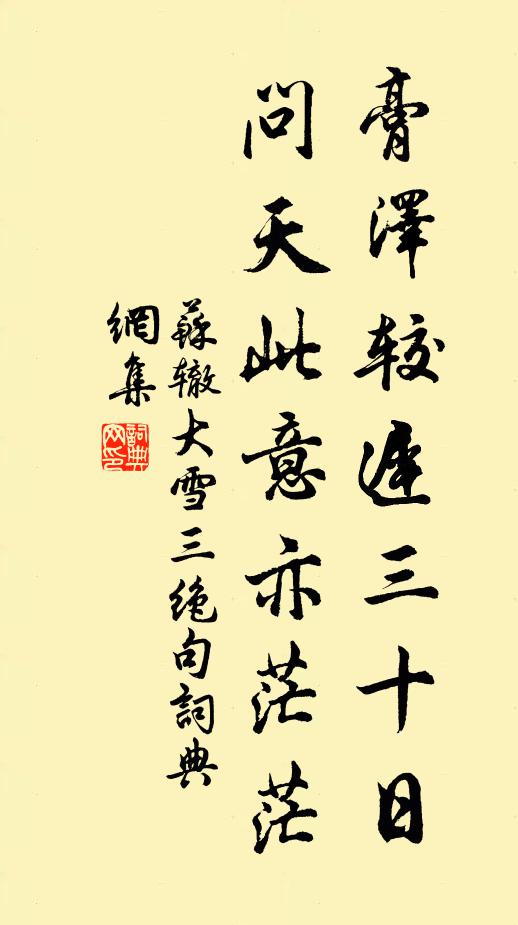 膏澤較遲三十日
問天此意亦茫茫
蘇轍大雪三絶句詞典
網集
詞典
网印